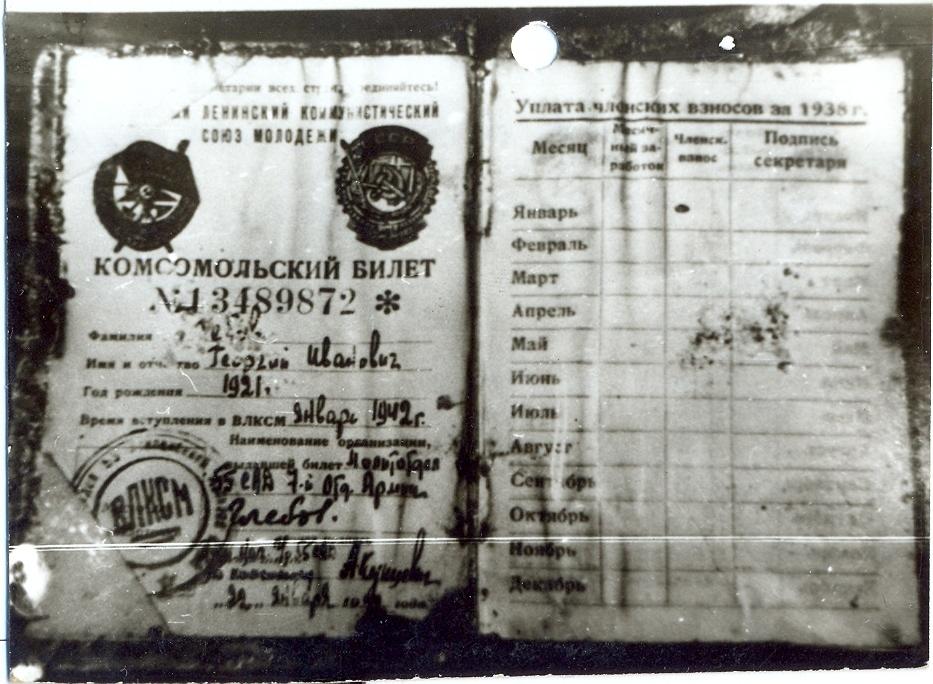 всех единяйтесь!
ЛЕНИНСКИЙ КОММУНИСТИЧЕСКИЙ
СОЮЗ МОЛОДЕЖИ
КОМСОМОЛЬСКИЙ БИЛЕТ
№13489872 *
Фамилия
Имя и отчество Георгий Иванович
Год рождения 1921г.
Время вступления в ВЛКСМ январь 1942г.
Наименование организации,
выдавшей билет Политотдел
55 7-й Отд. Армии
Глебов.
ВЛКСМ
января
Уплата членских взносов за 1938 г.
Месяц
Месяч-
ный за-
работок
Членск.
взнос
Подпись
секретаря
Январь
Февраль
Март
Апрель
Май
Июнь
Июль
Август
Сентябрь
Октябрь
Ноябрь
Декабрь